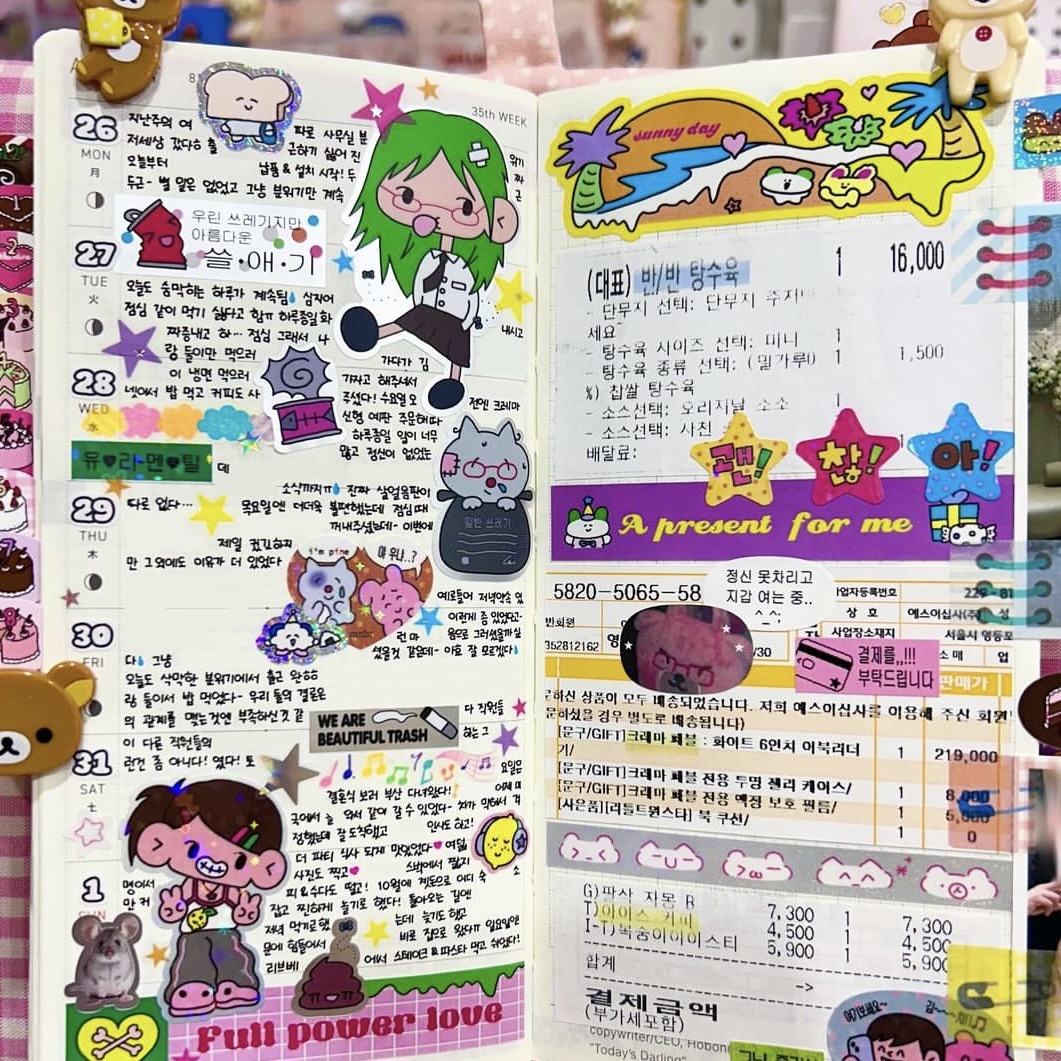 35th WEEK
26
MON
月
지난주의 여
저세상 갔다슈 출
파로 사무실 분
근하기 싫어 진
오늘부터
납품 & 설치 시작! 두
두근- 별 일은 없었고 그냥 분위기만 계속
우린 쓰레기지만
아름다운
쓸·애·기
27
TUE
火
오늘도 숨막히는 하루가 계속됨 심지어
점심 같이 먹기 싫다고 함ㅠ 하루종일 화
짜증내고 하… 점심 그래서 나
랑 둘이만 먹으러
내시고
가다가 김
28
WED
水
이 냉면 먹으러
넷이서 밥 먹고 커피도 사
가자고 해주셔서
주셨다! 수요일 오
전엔 크레마
신형 예판 주문해따
하루종일 일이 너무
많고 정신이 없었는
유♥라·멘♥틸
데
29
THU
木
소식까지ㅠ 진짜 살얼음판이
다로 없다…
목요일엔 더더욱 불편했는데 점심 때
꺼내주셨는데- 이번에
제일 컸긴하지
만 그외에도 이유가 더 있었다
일반 쓰레기
i'm pine
야 위나..?
예로들어 저녁약속 있
이런게 좀 있었다고-
30
FRI
런 마
음으로 그러셨을까 싶
셨을 것 같은데- 아효 잘 모르겠다
다 그냥
오늘도 삭막한 분위기에서 출근 완ㅎㅎ
랑 둘이서 밥 먹었다- 우리 둘의 결론은
의 관계를 맺는것엔 부족하신것 같
다 직원들
WE ARE
BEAUTIFUL TRASH
하는 그
31
SAT
土
이 다른 직원들의
런건 좀 아니다! 였다! 토
요일은
결혼식 보러 부산 다녀왔다!
국에서 늘 와서 같이 갈 수 있었다- 차가 막혀서 걱
정했는데 잘 도착했고
인사도 하고!
더 파티 식사 되게 맛있었다♥ 여덟
사진도 찍고♥
스벅에서 짧지
1
SUN
명이서
만 커
피 & 수다도 떨고! 10월에 계모으로 어디 숙
소
잡고 찐하게 놀기로 했다! 돌아오는 길엔
저녁 먹기로 했
는데 늦기도 하고
문에 힘들어서
바로 집으로 왔다!! 일요일엔
리브베
에서 스테이크 & 파스타 먹고 쉬었다!
Full power love
sunny day
(대표) 반/반 탕수육 1 16,000
- 단무지 선택: 단무지 주지
세요~
- 탕수육 사이즈 선택: 미니 1
- 탕수육 종류 선택: (밀가루0 1 1,500
%) 찹쌀 탕수육
- 소스선택: 오리지널 소스 1
- 소스선택: 사천
배달료: 1
괜! 찮! 아!
A present for me
정신 못차리고
지갑 여는 중..
^_^
5820-5065-58
사업자등록번호 229-81
상 호 예스이십사(주) 성
사업장소재지 서울시 영등포
352812162 영
/30
소매 업
결제를,,!!!
부탁드립니다
판매가
문하신 상품이 모두 배송되었습니다. 저희 예스이십사를 이용해 주신 회원
문하셨을 경우 별도로 배송됩니다)
[문구/GIFT]크레마 페블 : 화이트 6인치 이북리더
기/ 1 219,000
[문구/GIFT]크레마 페블 전용 투명 젤리 케이스/ 1 8,000
[문구/GIFT]크레마 페블 전용 액정 보호 필름/ 1 5,000
[사은품][리틀트윈스타] 북 쿠션/ 1 0
G)판사 자몽 R 7,300 1 7,300
T)아이스 커피 4,500 1 4,500
I-T)복숭아아이스티 5,900 1 5,900
합계
->
결제금액
(부가세포함)
copywriter/CEO, Hobon
"Today's Darling"